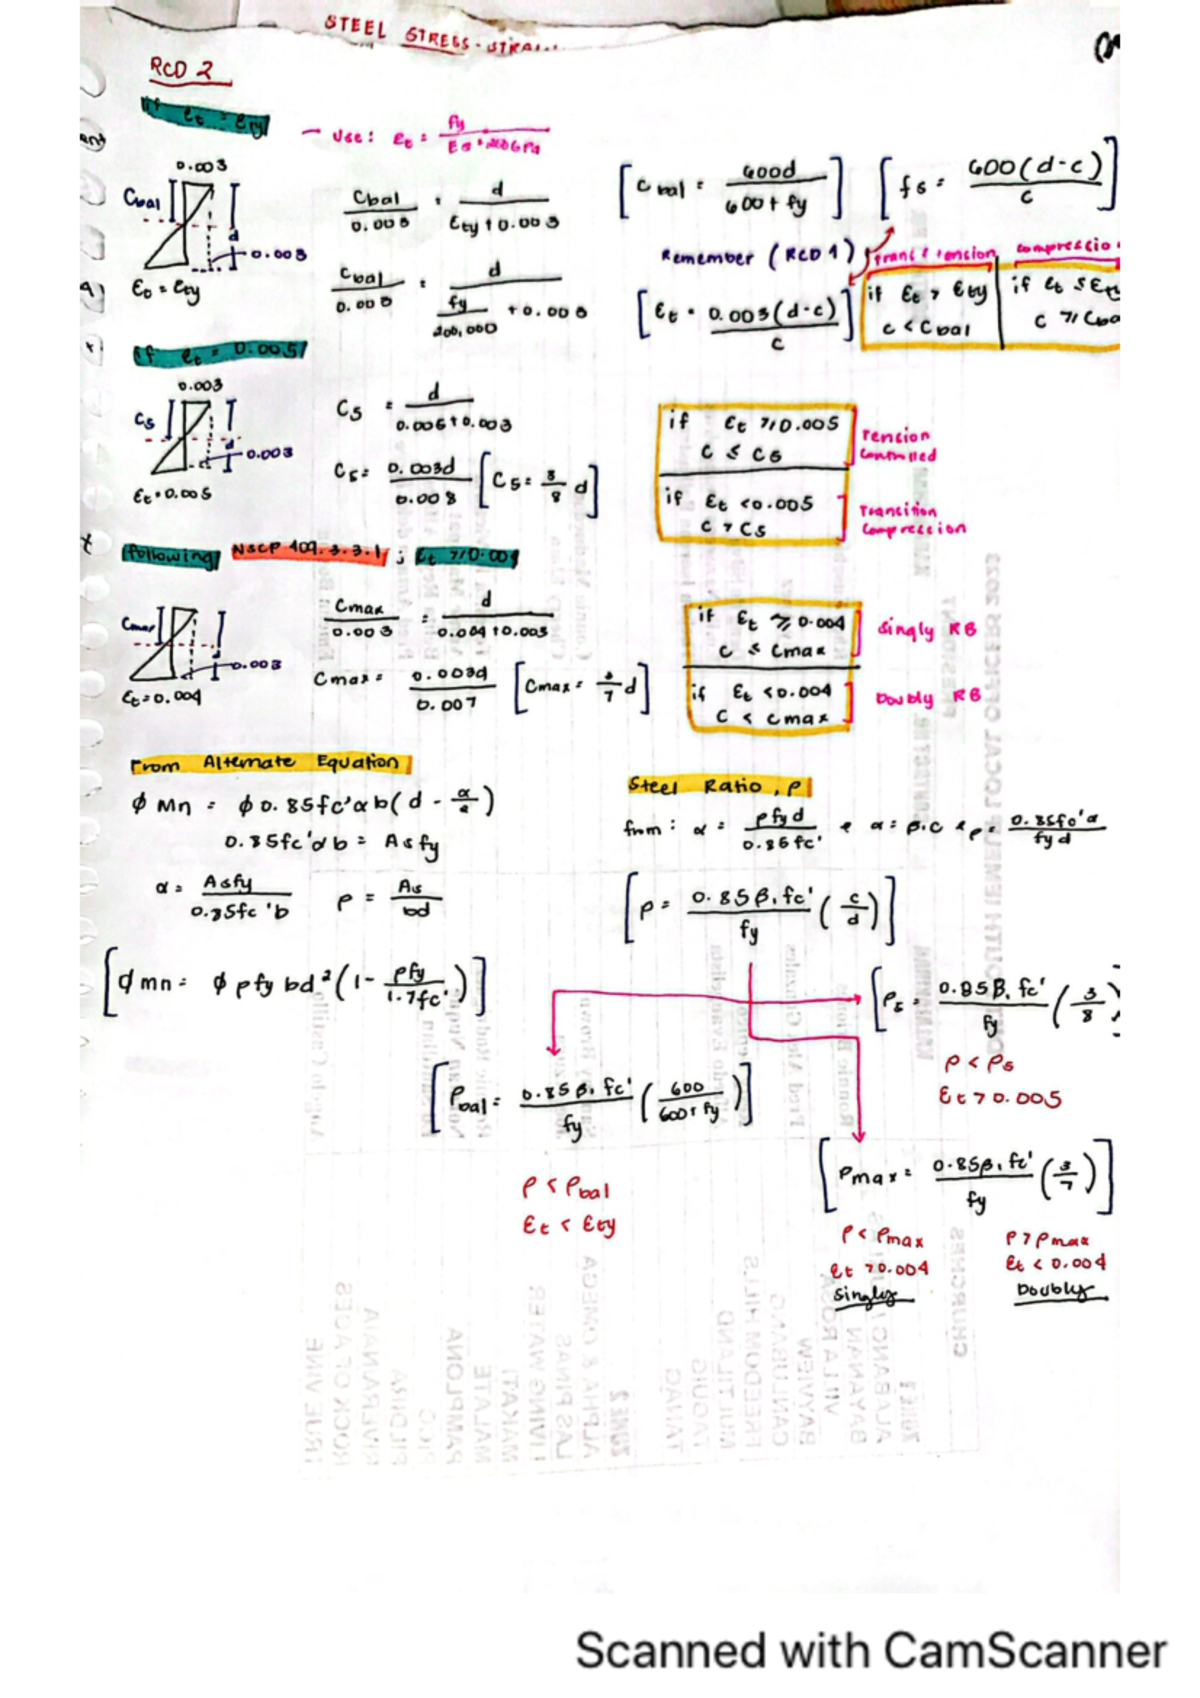 STEEL STRESS-STRAI
RCD 2
if εt = εty
→ Use: εt = fy / Es = 200GPa
0.003
Cbal
d
0.003
εo = εty
Cbal / 0.003 = d / εty + 0.003
Cbal / 0.003 = d / (fy / 200,000 + 0.003)
[Cbal = 600d / 600 + fy]
[fs = 600(d-c) / c]
Remember (RCD 1)
[εt = 0.003(d-c) / c]
trans & tension
compressio
if εt > εty
c < Cbal
if εt ≤ εty
c ≥ Cba
if εt = 0.005
0.003
C5
d
0.003
εt = 0.005
C5 = d / 0.005 + 0.003
C5 = 0.003d / 0.008 [C5 = 3/8 d]
if εt ≥ 0.005
c ≤ C5
Tension
Controlled
if εt < 0.005
c > C5
Transition
Compression
following NSCP 409.3.3.1 ; εt ≥ 0.004
Cmax
0.003
εt = 0.004
Cmax / 0.003 = d / 0.004 + 0.003
Cmax = 0.003d / 0.007 [Cmax = 3/7 d]
if εt ≥ 0.004
c ≤ Cmax
Singly RB
if εt < 0.004
c < cmax
Doubly RB
From Alternate Equation
φ Mn = φ 0.85fc'αb(d - α/2)
0.85fc'αb = Asfy
α = Asfy / 0.85fc'b
ρ = As / bd
[φmn = φρfy bd²(1 - ρfy / 1.7fc')]
Steel Ratio, ρ
from: α = ρfyd / 0.85fc' & α = β1c & ρ = 0.85fc'α / fyd
[ρ = 0.85β1fc' / fy (c/d)]
[ρ5 = 0.85β1fc' / fy (3/8)
ρ < ρ5
εt > 0.005
[ρbal = 0.85β1fc' / fy (600 / 600 + fy)]
ρ < ρbal
εt < εty
[ρmax = 0.85β1fc' / fy (3/7)]
ρ < ρmax
εt > 0.004
Singly
ρ > ρmax
εt < 0.004
Doubly
Scanned with CamScanner